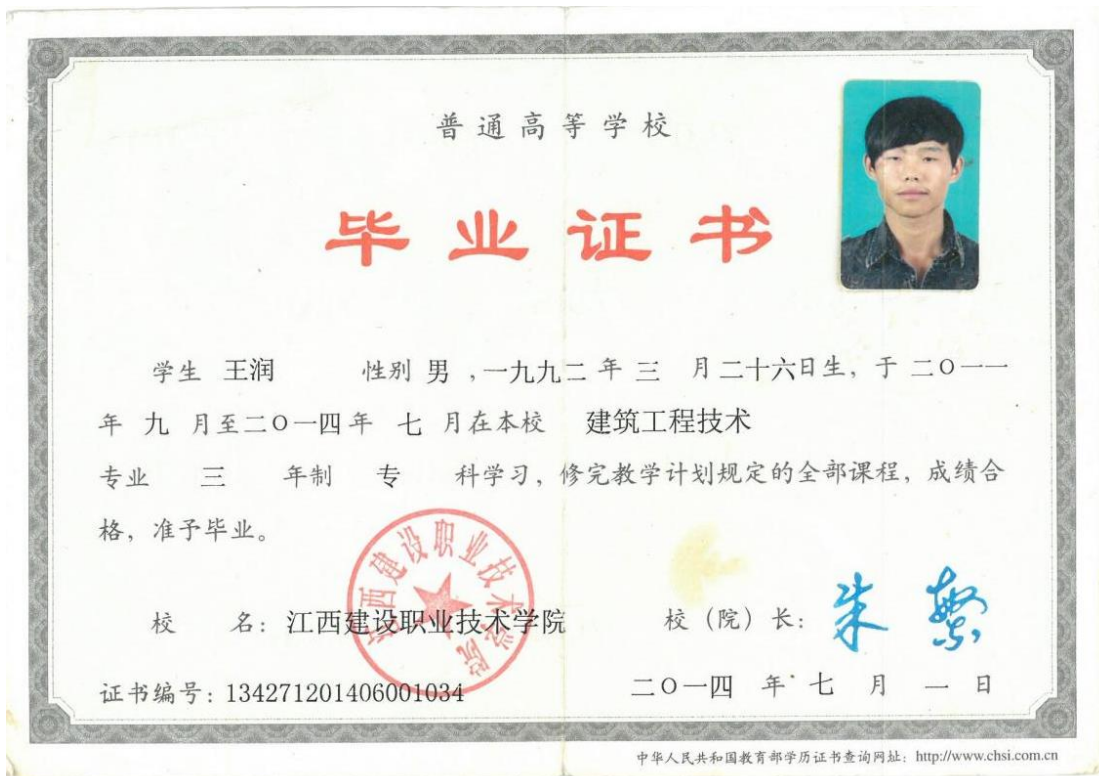 普通高等学校
毕业证书
学生 王润 性别 男 ,一九九二 年 三 月 二十六日生，于 二〇一一
年 九 月至二〇一四年 七 月在本校 建筑工程技术
专业 三 年制 专 科学习，修完教学计划规定的全部课程，成绩合
格，准予毕业。
江西建设职业技术学院
校 名：江西建设职业技术学院 校（院）长：朱繁
证书编号：134271201406001034 二〇一四 年 七 月 一 日
中华人民共和国教育部学历证书查询网址：http://www.chsi.com.cn